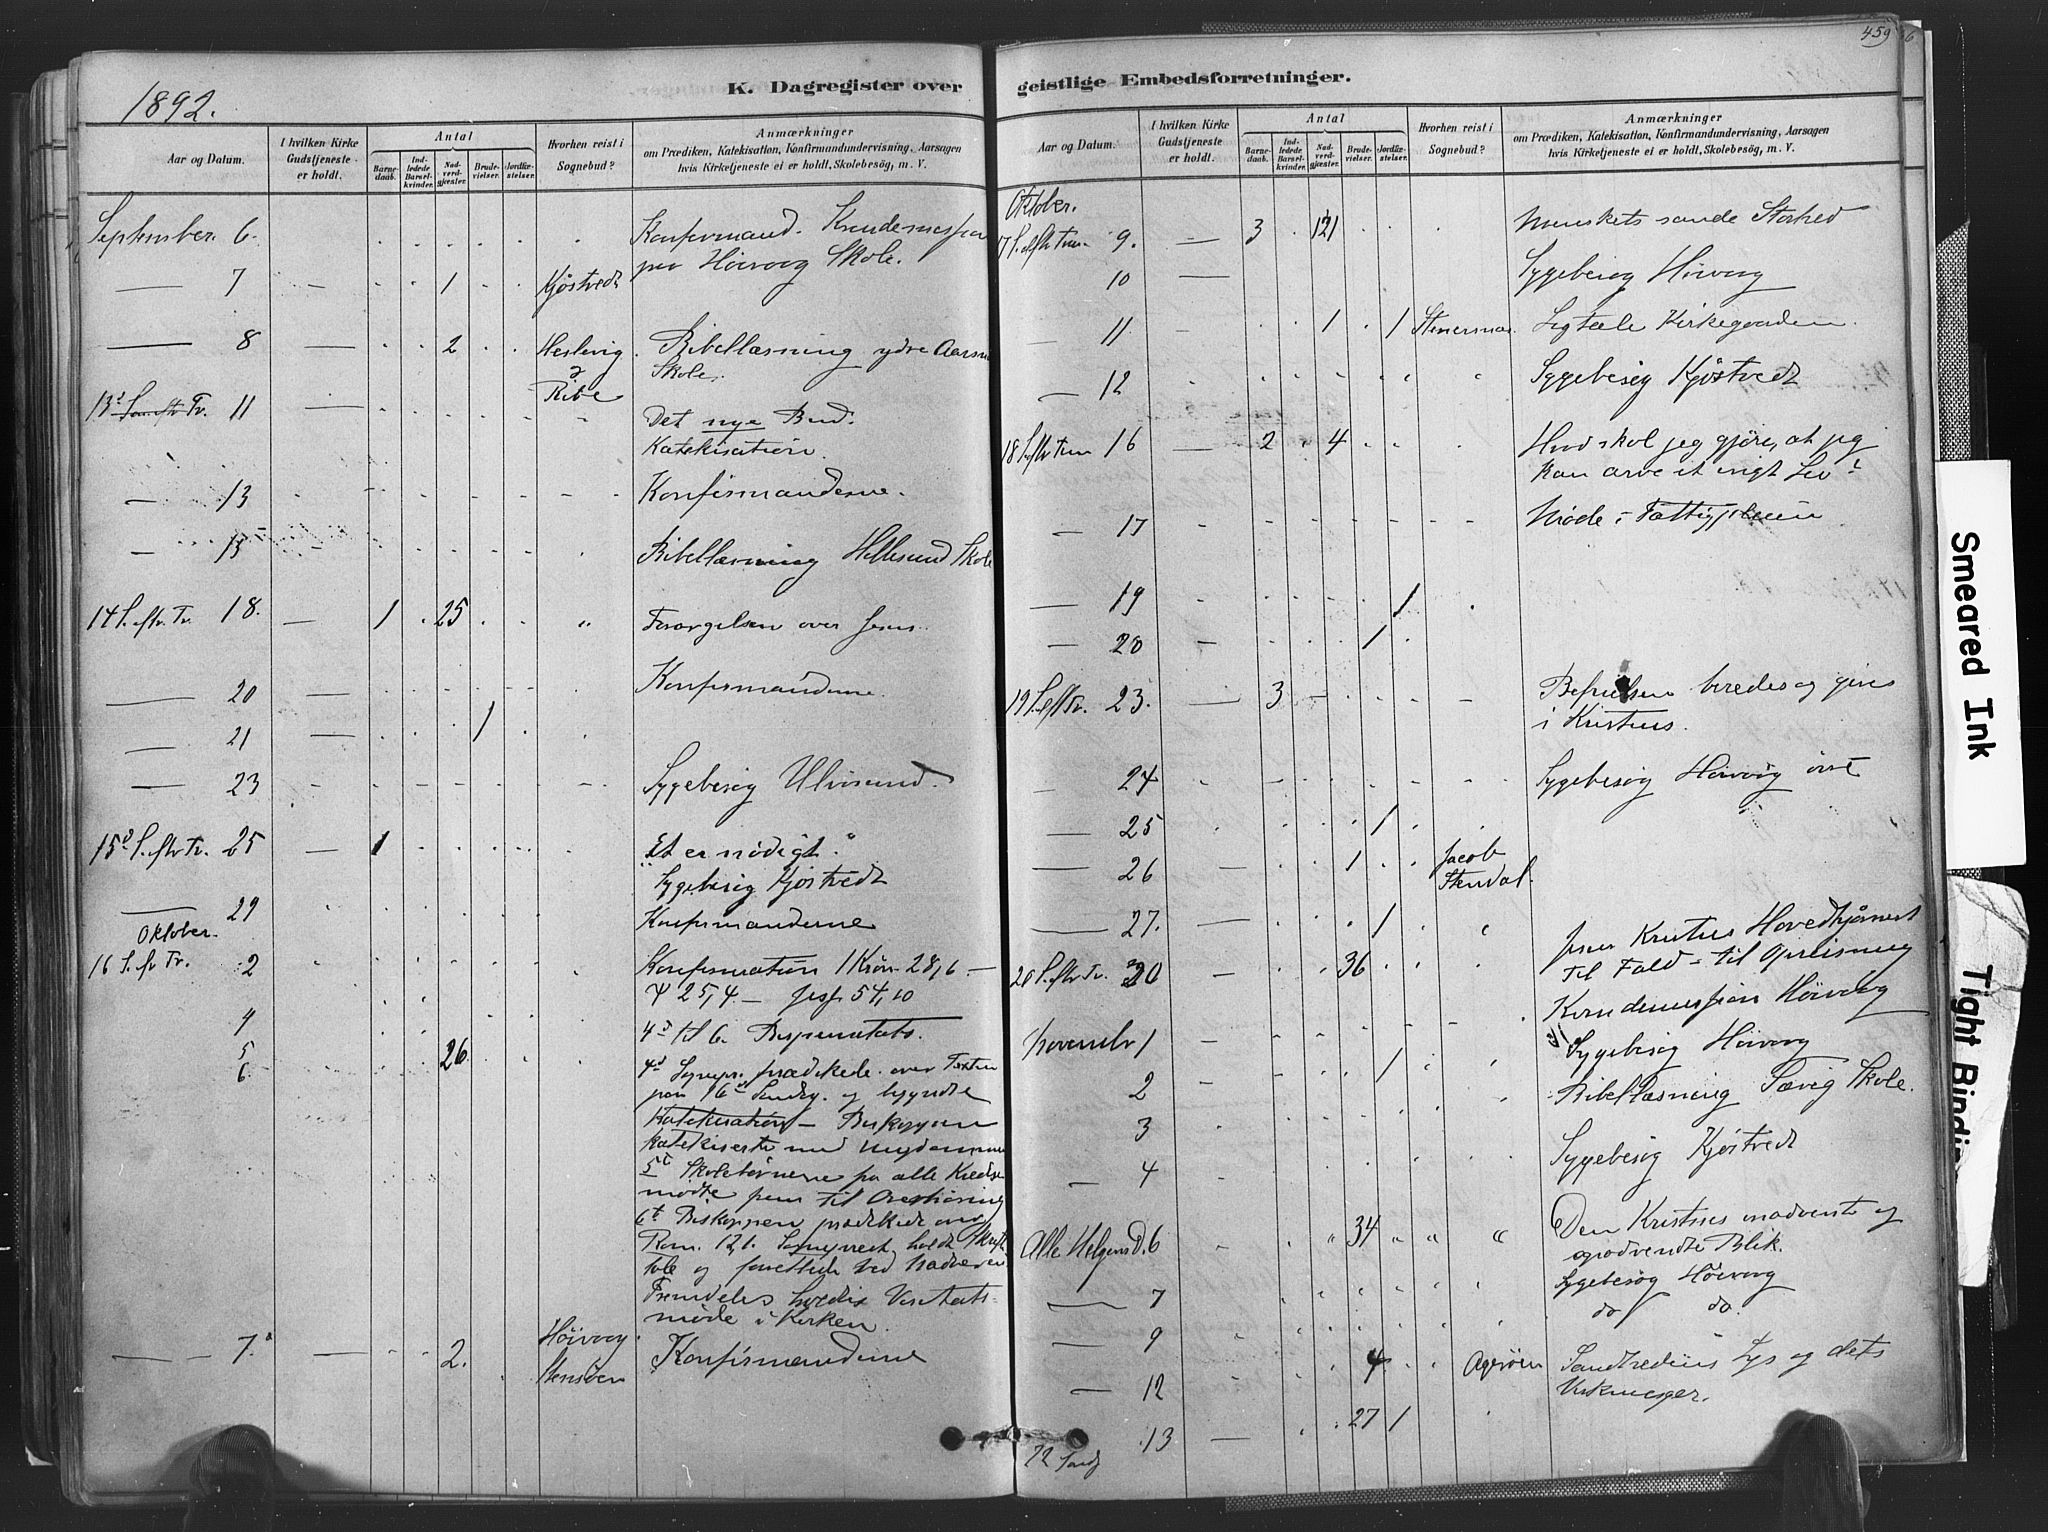 459
1892.
K. Dagregister over
geistlige Embedsforretninger.
Aar og Datum.
I hvilken Kirke Gudstjeneste er holdt.
Antal
Barnedaab.
Indledede Barselkvinder.
Nadverdgjæster.
Brudevielser.
Jordfæstelser.
Hvorhen reist i Sognebud?
Anmærkninger
om Prædiken, Katekisation, Konfirmandundervisning, Aarsagen
hvis Kirketjeneste ei er holdt, Skolebesög, m. V.
September 6. Konfirmand.
paa Höivaag Skole.
7 1 Kjöstvedt
8 2 Heslevig & Ribe Bibellæsning ydre
Skole.
13d Tr. 11 Det nye Bud.
Katekisation.
13 Konfirmanderne.
15 Bibellæsning Hellesund Skole
14 S. eftr. Tr. 18. 1 25 Forargelsen over Jesus.
20 Konfirmanderne.
21 1
23 Sygebesög Ulvösund.
15d S. eftr Tr. 25 1 "Et er nödigt"
Sygebesög Kjöstvedt
29 Konfirmanderne
Oktober.
16 S. eftr Tr. 2 Konfirmation 1 Krön 28,6 —
Ψ 25,4 — Jesf 54,10
4 4d til 6. Bispevisitats.
5 26
6. 4d Sognepr. prædikede over Texten
paa 16d Søndg. og begyndte
Katekisation — Biskoppen
katekiserte med Ungdommen
5t Skolebörnene fra alle Kredse
mödte frem til Overhöring
6t Biskoppen prædikede over
Rom. 12,1. Sognepresten holdt Skrifte
tale og forrettede ved Nadveren
Fremdeles holdtes Visitats-
möde i Kirken.
7. 2. Höivaag
Stensöen Konfirmanderne
Aar og Datum.
I hvilken Kirke Gudstjeneste er holdt.
Antal
Barnedaab.
Indledede Barselkvinder.
Nadverdgjæster.
Brudevielser.
Jordfæstelser.
Hvorhen reist i Sognebud?
Anmærkninger
om Prædiken, Katekisation, Konfirmandundervisning, Aarsagen
hvis Kirketjeneste ei er holdt, Skolebesög, m. V.
Oktober.
17 S. eftr Trin. 9. 3 121 sande Storhed
10 Sygebesög Höivaag
11 1 1 Stenersnæs. Ligtale Kirkegaarden.
12 Sygebesög Kjöstvedt
18 S. eftr Trin 16 2 4 Hvad skal jeg gjöre, at jeg
kan arve et evigt Liv?
17 Möde i Fattigpleien
19 1
20 1
19 S. eft Tr. 23. 3 Befrielsen beredes og gives
i Kristus.
24 Sygebesög Höivaag
25 1
26 1 Jacob
Stendal.
27. 1
20 S. eftr Tr. 30 36 Kristus Hovedhjörnest
til Fald — til Opreisning
Höivaag
November 1 Sygebesög Höivaag
2 1 Bibellæsning Sævig Skole.
3
4 Sygebesög Kjöstvedt
Alle Helgens D. 6 34 Den Kristnes indvendte og
opadvendte Blik.
7 Sygebesög Höivaag
9 do do.
12 4 Agerøen Sandhedens Lys og dets
Virkninger.
13 27 1
22 Sønd
Smeared Ink
Tight Bindin